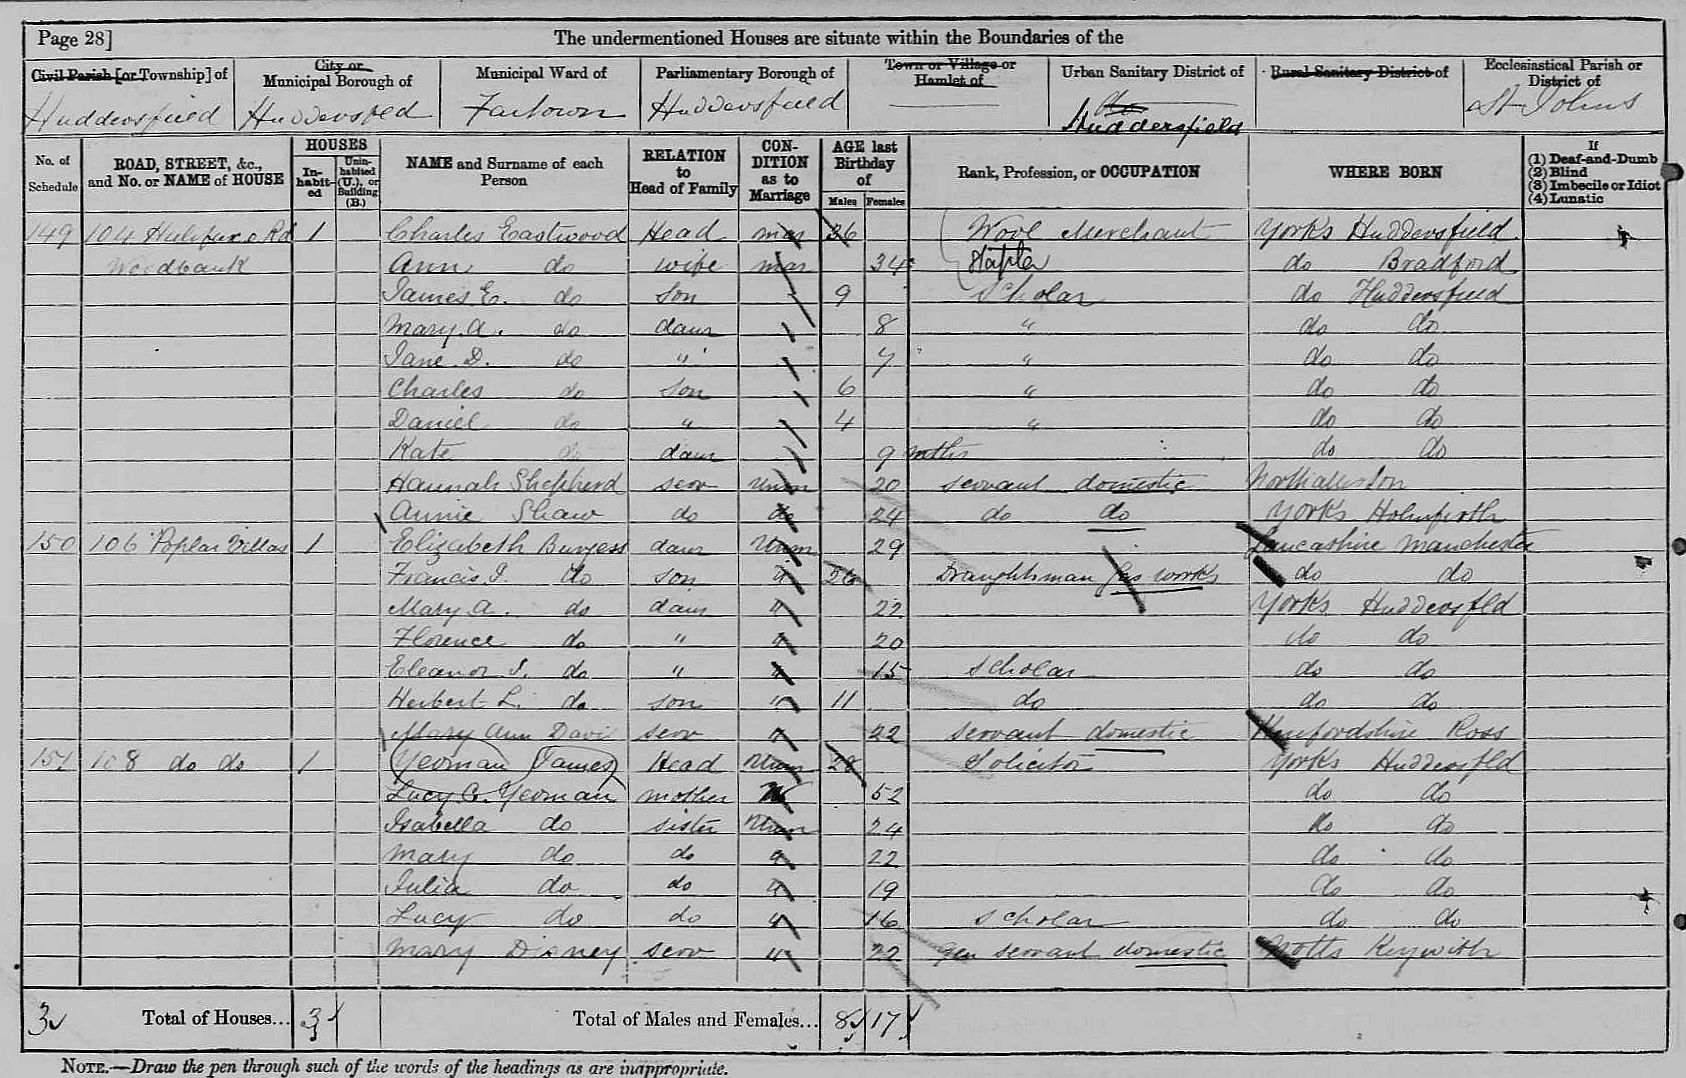 Page 28]
The undermentioned Houses are situate within the Boundaries of the
Civil Parish [or Township] of
City or Municipal Borough of
Municipal Ward of
Parliamentary Borough of
Town or Village or Hamlet of
Urban Sanitary District of
Rural Sanitary District of
Ecclesiastical Parish or District of
Huddersfield Huddersfed Fartown Huddersfield Huddersfield St Johns
No. of Schedule
ROAD, STREET, &c., and No. or NAME of HOUSE
HOUSES
In-habit-ed
Unin-habited (U.), or Building (B.)
NAME and Surname of each Person
RELATION to Head of Family
CON-DITION as to Marriage
AGE last Birthday of
Males Females
Rank, Profession, or OCCUPATION
WHERE BORN
If
(1) Deaf-and-Dumb
(2) Blind
(3) Imbecile or Idiot
(4) Lunatic
149 104 Halifax Rd 1 Charles Eastwood Head mar 36 Wool Merchant Yorks Huddersfield
Woodbank Ann do wife mar 34 Stapler do Bradford
James E. do son 9 Scholar do Huddersfield
Mary A. do daur 8 " do do
Jane D. do " 7 " do do
Charles do son 6 " do do
Daniel do " 4 " do do
Kate do daur 9 mths do do
Hannah Shepherd serv unm 20 servant domestic Northallerton
Annie Shaw do do 24 do do Yorks Holmfirth
150 106 Poplar Villas 1 Elizabeth Burgess daur Unm 29 Lancashire Manchester
Francis J. do son " 26 Draughtsman Gas works do do
Mary A. do daur " 22 Yorks Huddersfld
Florence do " " 20 do do
Eleanor J. do " " 15 Scholar do do
Herbert L. do son " 11 do do do
Mary Ann Davis serv " 22 servant domestic Herefordshire Ross
151 108 do do 1 Yeoman James Head Unm 28 Solicitor Yorks Huddersfld
Lucy C. Yeoman mother 52 do do
Isabella do sister Unm 24 do do
Mary do do " 22 do do
Julia do do " 19 do do
Lucy do do " 16 Scholar do do
Mary Disney serv " 22 gen servant domestic Notts Keyworth
3 Total of Houses... 3 Total of Males and Females... 8 17
NOTE.—Draw the pen through such of the words of the headings as are inappropriate.